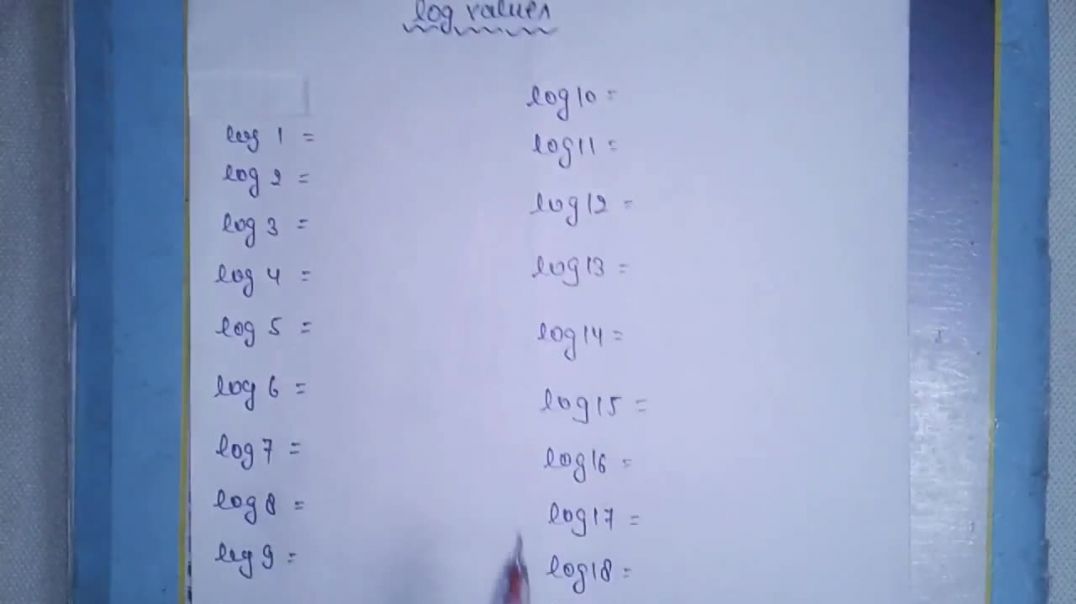 log values
log 1 =
log 2 =
log 3 =
log 4 =
log 5 =
log 6 =
log 7 =
log 8 =
log 9 =
log 10 =
log 11 =
log 12 =
log 13 =
log 14 =
log 15 =
log 16 =
log 17 =
log 18 =